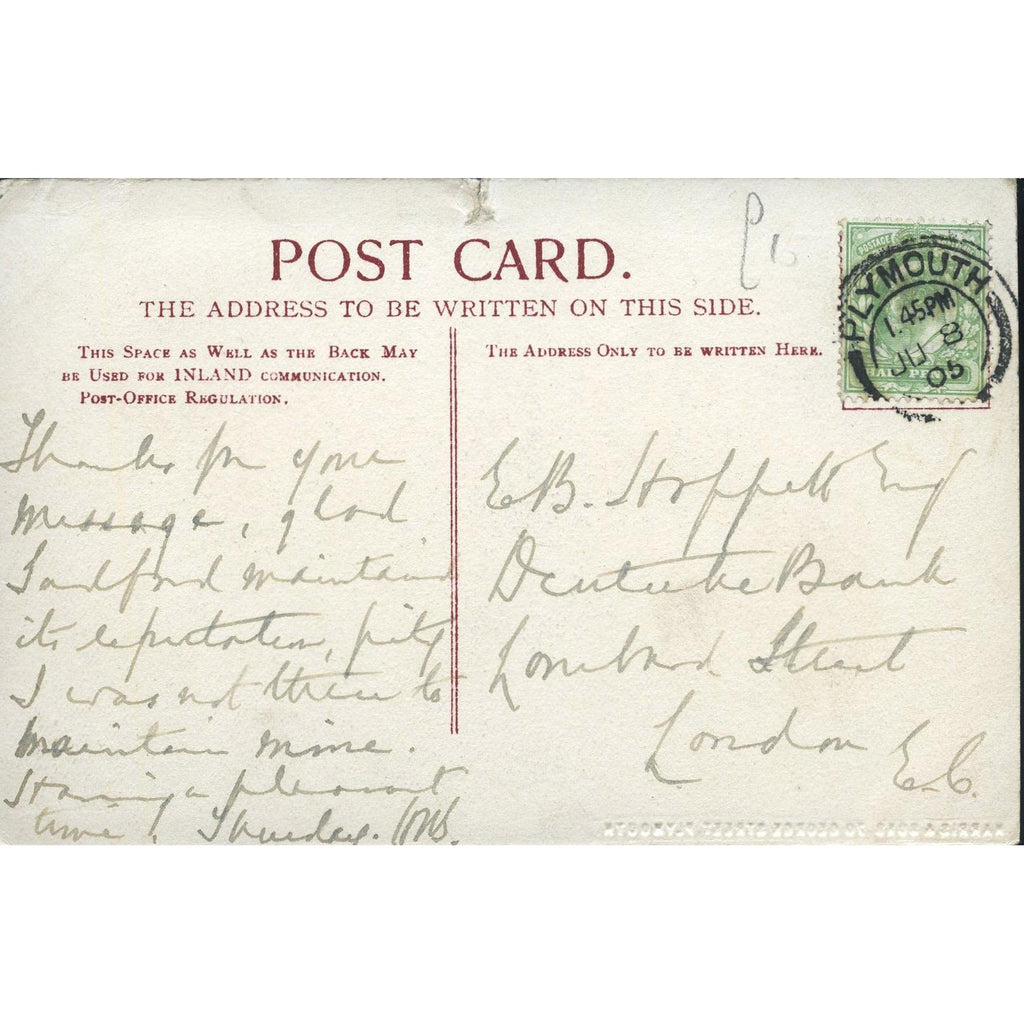 POST CARD.
THE ADDRESS TO BE WRITTEN ON THIS SIDE.
THIS SPACE AS WELL AS THE BACK MAY
BE USED FOR INLAND COMMUNICATION.
POST-OFFICE REGULATION.
THE ADDRESS ONLY TO BE WRITTEN HERE.
PLYMOUTH
1.45PM
JU 8
05
Thanks for your
message, glad
Sandford maintains
its reputation, pity
I was not there to
maintain mine.
Having a pleasant
time! Thursday.
E.B. Hoppett Esq
Deutsche Bank
Lombard Street
London
E.C.
HARRIS & SONS 70 GEORGE STREET PLYMOUTH